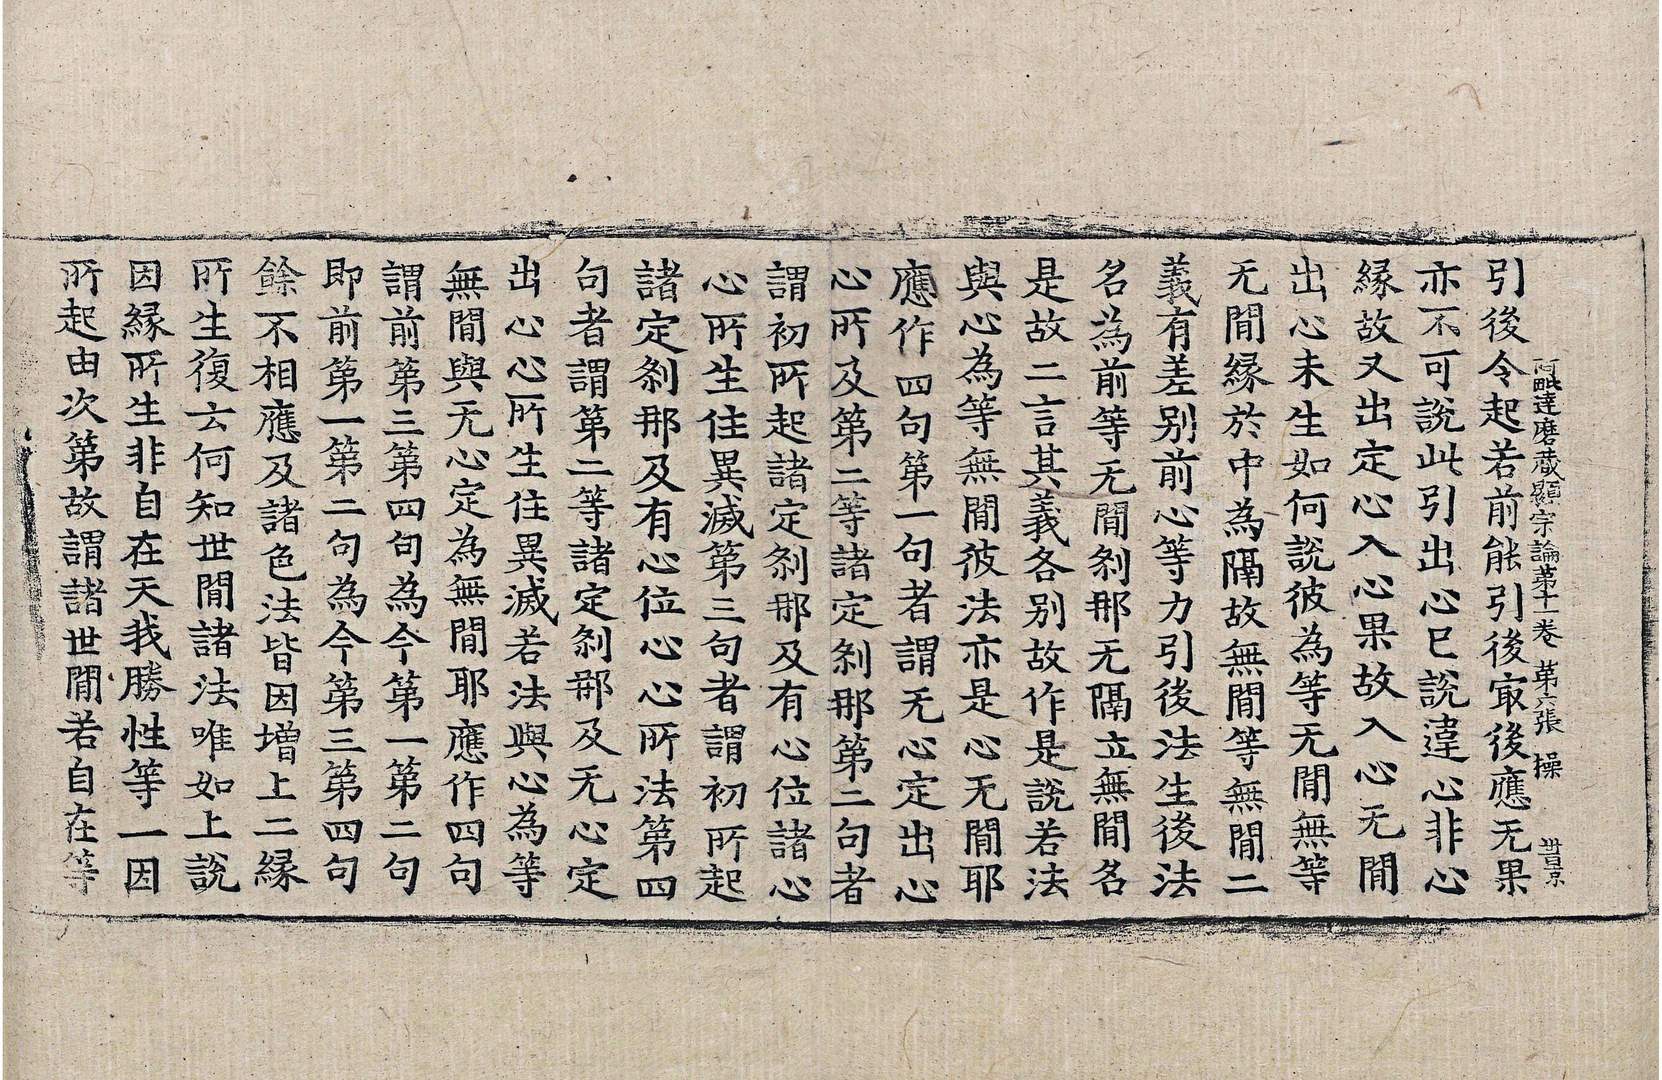 阿毗達磨藏顯宗論第十一卷 第六張 操
引後令起若前能引後㝡後應无果
亦不可說此引出心已說違心非心
縁故又出定心入心果故入心无間
出心未生如何說彼為等无間無等
无間縁於中為隔故無間等無間二
義有差別前心等力引後法生後法
名為前等无間剎那无隔立無間名
是故二言其義各別故作是說若法
與心為等無間彼法亦是心无間耶
應作四句第一句者謂无心定出心
心所及第二等諸定剎那第二句者
謂初所起諸定剎那及有心位諸心
心所生住異滅第三句者謂初所起
諸定剎那及有心位心心所法第四
句者謂第二等諸定剎那及无心定
出心心所生住異滅若法與心為等
無間與无心定為無間耶應作四句
謂前第三第四句為今第一第二句
即前第一第二句為今第三第四句
餘不相應及諸色法皆因增上二縁
所生復云何知世間諸法唯如上說
因縁所生非自在天我勝性等一因
所起由次第故謂諸世間若自在等